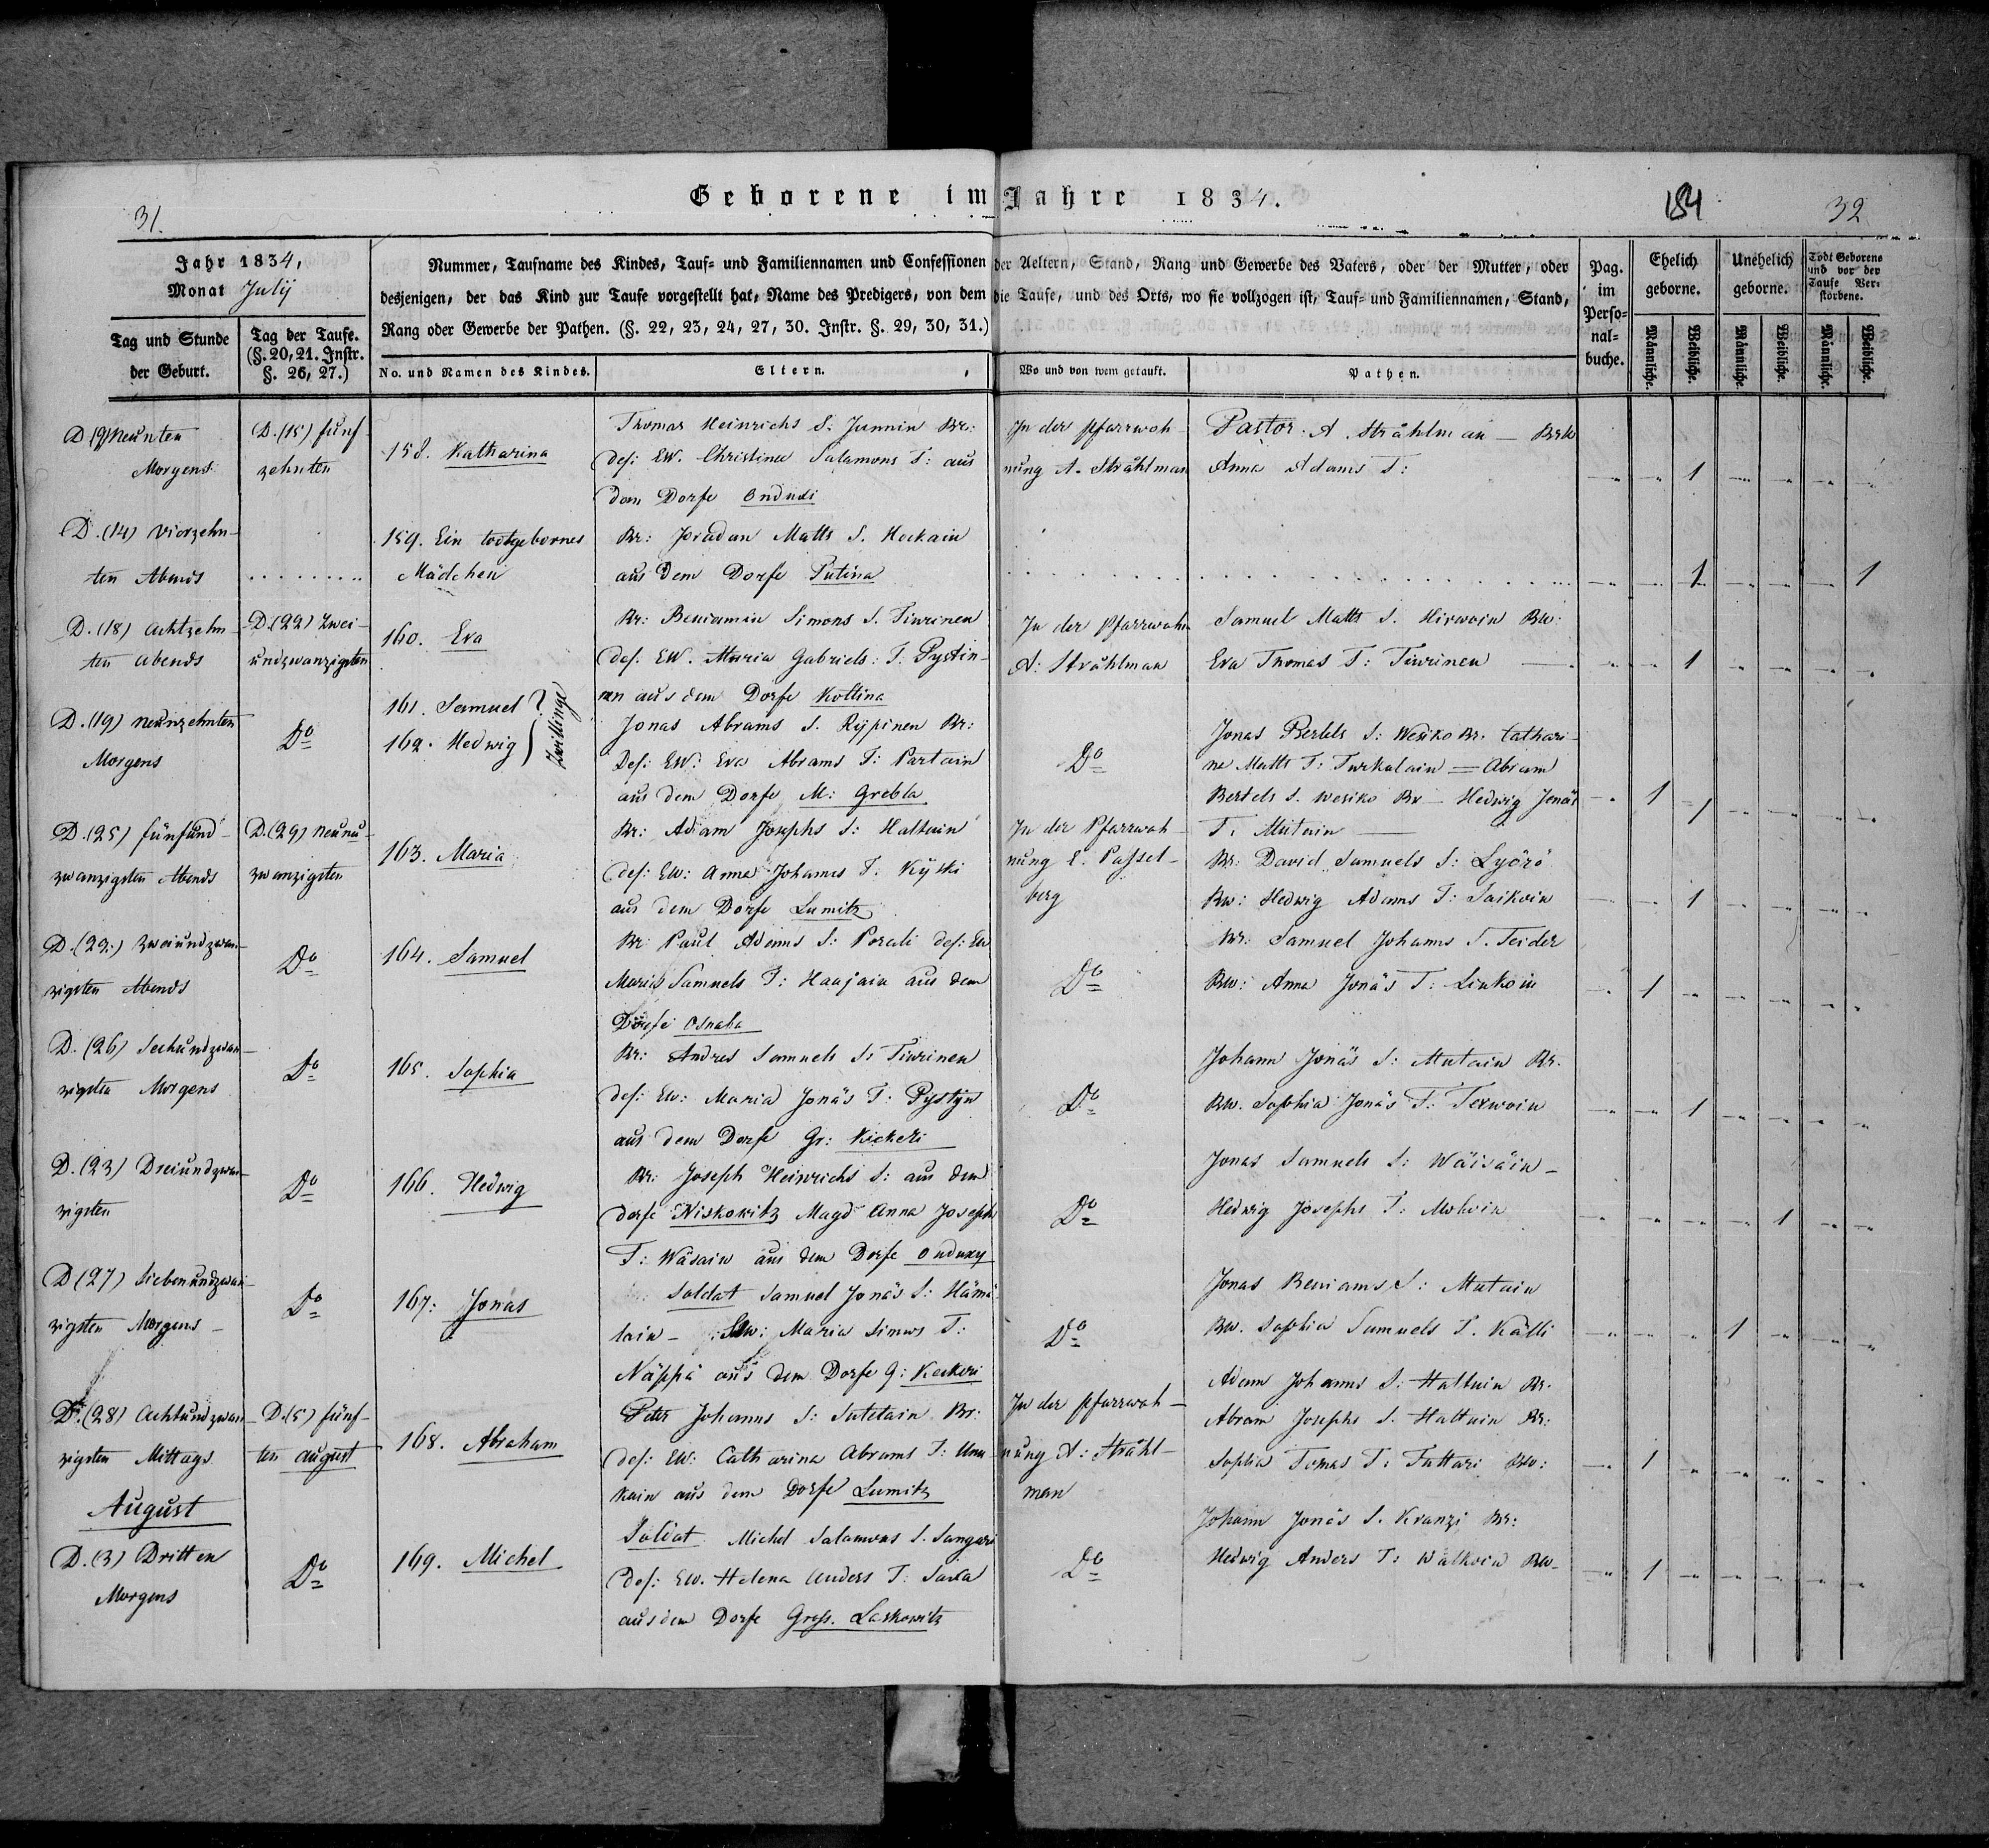 Geborene im Jahre 1834.
31.
184
32
Jahr 1834,
Monat Julij
Tag und Stunde
der Geburt.
Tag der Taufe.
(§. 20, 21. Instr.
§. 26, 27.)
Nummer, Taufname des Kindes, Tauf- und Familiennamen und Confessionen der Aeltern, Stand, Rang und Gewerbe des Vaters, oder der Mutter, oder
desjenigen, der das Kind zur Taufe vorgestellt hat, Name des Predigers, von dem die Taufe, und des Orts, wo sie vollzogen ist, Tauf- und Familiennamen, Stand,
Rang oder Gewerbe der Pathen. (§. 22, 23, 24, 27, 30. Instr. §. 29, 30, 31.)
No. und Namen des Kindes.
Eltern.
Wo und von wem getauft.
Pathen.
Pag.
im
Perso-
nal-
buche.
Ehelich
geborne.
Unehelich
geborne.
Todt Geborene
und vor der
Taufe Ver-
storbene.
Männliche.
Weibliche.
Männliche.
Weibliche.
Männliche.
Weibliche.
D (9) Neunten
Morgens
D. (15) fünf-
zehnten
158. Katharina
Thomas Heinrichs S. Junnin Br:
des: EW. Christina Salamons T: aus
dem Dorfe Onduxi
In der Pfarrwoh-
nung A. Strählman
Pastor A. Strählman —
Anna Adams T:
1
D. (14) vierzehn-
ten Abends
159. Ein todtgebornes
Mädchen
Br: Joradan Matts S. Hockain
aus dem Dorfe Putina
1 1
D. (18) achtzehn-
ten abends
D. (22) Zwei-
undzwanzigsten
160. Eva
Br: Beniamin Simons S. Tiurinen
des. EW. Maria Gabriels: T. Pystin-
nen aus dem Dorfe Kottina
In der Pfarrwohn
A. Strählman
Samuel Matts S. Hirwoin Bw:
Eva Thomas T: Tiurinen
1
D. (19) neunzehnten
Morgens
Do
161. Samuel
162. Hedwig
Zwillinge
Jonas Abrams S. Rypinen Br:
Des: EW. Eva Abrams T: Partain
aus dem Dorfe M: Grebla
Do
Jonas Bertels S: Wesiko Br. Cathari-
na Matts T: Turkulain = Abram
Bertels S. Wesiko Br — Hedwig Jonäs
T: Mutain
1 1
D. (25) fünfund-
zwanzigsten Abends
D. (29) neunu-
zwanzigsten
163. Maria
Br: Adam Josephs S: Haltuin
des: EW: Anna Johanns T. Kyski
aus dem Dorfe Lumitz
In der Pfarrwoh-
nung E. Passel-
berg
Br: David Samuels S: Lyörö
Bw: Hedwig Adams T: Saikoin
1
D. (22:) Zweiundzwan-
zigsten Abends
Do
164. Samuel
Br: Paul Adams S: Porali des: EW
Maria Samuels T: Haajain aus dem
Dorfe Osnaka
Do
Br: Samuel Johanns S. Teider
Bw: Anna Jonäs T: Linkoin
1
D. (26) Sechundzwan-
zigsten Morgens
Do
165. Sophia
Br: Andres Samuels S: Tiurinen
des: EW: Maria Jonäs T: Pystyn
aus dem Dorfe Gr: Kickeri
Do
Johann Jonäs S: Mutain Br.
Bw. Sophia Jonäs T: Terwoin
1
D. (23) Dreiundzwan-
zigsten
Do
166. Hedwig
Br: Joseph Heinrichs S: aus dem
dorfe Niskowitz Magd Anna Josephs
T: Wäsain aus dem Dorfe Onduxy
Do
Jonas Samuels S: Wäisäin —
Hedwig Josephs T: Mohoin
1
D (27) Siebenundzwan-
zigsten Morgens —
Do
167: Jonas
Soldat Samuel Jonäs S: Hämä-
lain — Maria Simons T:
Näppä aus dem Dorfe G: Keckeri
Do
Jonas Beniams S: Mutain
Bw. Sophia Samuels T. Källi
1
D. (28) Achtundzwan-
zigsten Mittags
D. (5) fünf-
ten august
168. Abraham
Peter Johanns S: Sutelain Br:
des: EW: Catharina Abrams T: Unu-
kain aus dem Dorfe Lumitz
In der Pfarrwoh-
nung A: Strähl-
man
Adam Johanns S: Haltuin Br.
Abram Josephs S. Haltuin Br:
Sophia Tomas T: Tuttari Bw:
1
August
D. (3) Dritten
Morgens
Do
169. Michel
Soldat Michel Salamons S. Sungari
des: EW. Helena Anders T: Saxa
aus dem Dorfe Gross. Laskowitz
Do
Johann Jonäs S. Kranzi Br:
Hedwig Anders T: Walkoin Bw-
1